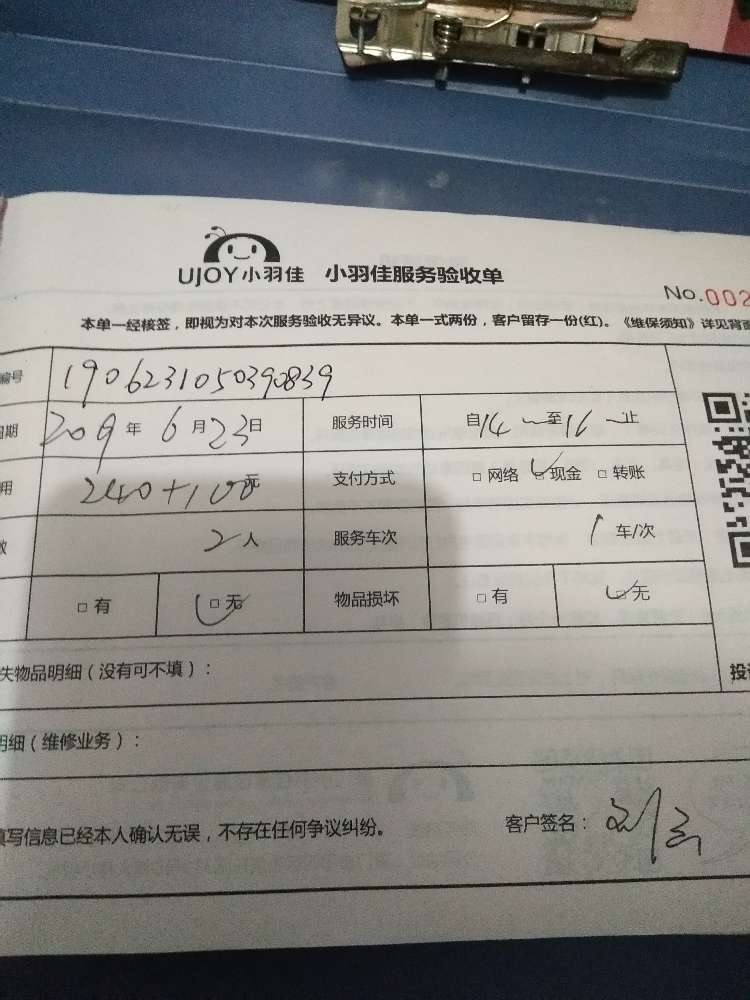 UJOY小羽佳 小羽佳服务验收单
No.002
本单一经核签，即视为对本次服务验收无异议。本单一式两份，客户留存一份(红)。《维保须知》详见背面
编号 1906231050390839
期 209年6月23日 服务时间 自14~至16~止
用 240+100元 支付方式 □网络 □现金 □转账
数 2人 服务车次 1车/次
□有 □无 物品损坏 □有 □无
失物品明细（没有可不填）： 投
明细（维修业务）：
填写信息已经本人确认无误，不存在任何争议纠纷。 客户签名：刘云